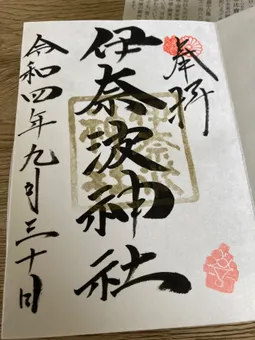 奉拝
伊奈波神社
令和四年九月三十日